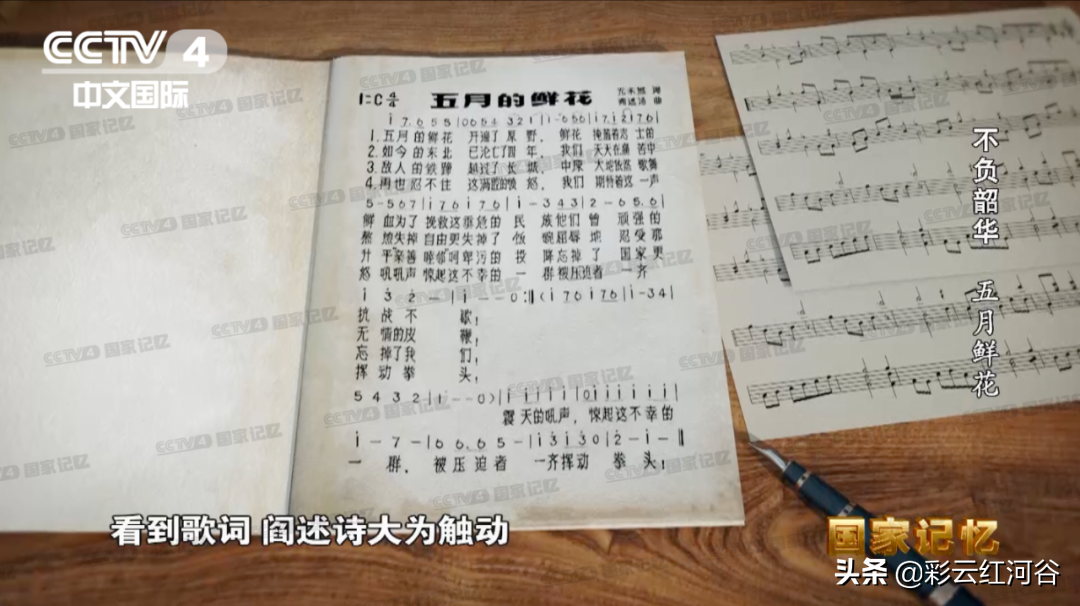 CCTV 4
中文国际
1=C 4/4
五月的鲜花
光未然 词
阎述诗 曲
i 7 6 5 5 | 0 6 5 4 3 2 1 |
1.五月的鲜花 开遍了原野，鲜花 掩盖着志士的
2.如今的东北 已沦亡了四年，我们 天天在痛苦中
3.敌人的铁蹄 越过了长城，中原 大地依然歌舞
4.再也忍不住 这满腔的愤怒，我们 期待着这一声
5-567|i76i76|i-343|2-65.6|
鲜 血为了 挽救这垂危的 民 族他们曾 顽强的
熬 煎失掉 自由更失掉了 饭 碗屈辱地 忍受那
升 平亲善睦邻啊卑污的 投 降忘掉了 国家更
怒 吼吼声 惊起这不幸的 一 群被压迫者 一齐
i 3 2 - | i - - 0 :‖ ( i 7 6 i 7 6 | i - 3 4 |
抗 战不 歇；
无 情的皮 鞭；
忘 掉了我 们；
挥 动拳 头；
5 4 3 2 | 1 - - 0 )
震 天的吼声，惊起这不幸的
i - 7 - | 6 6. 6 5 - | i 3 i 3 0 | 2 - i - ‖
一 群，被压迫者 一齐挥动 拳 头；
不负韶华 五月鲜花
看到歌词 阎述诗大为触动
国家记忆
头条 @彩云红河谷